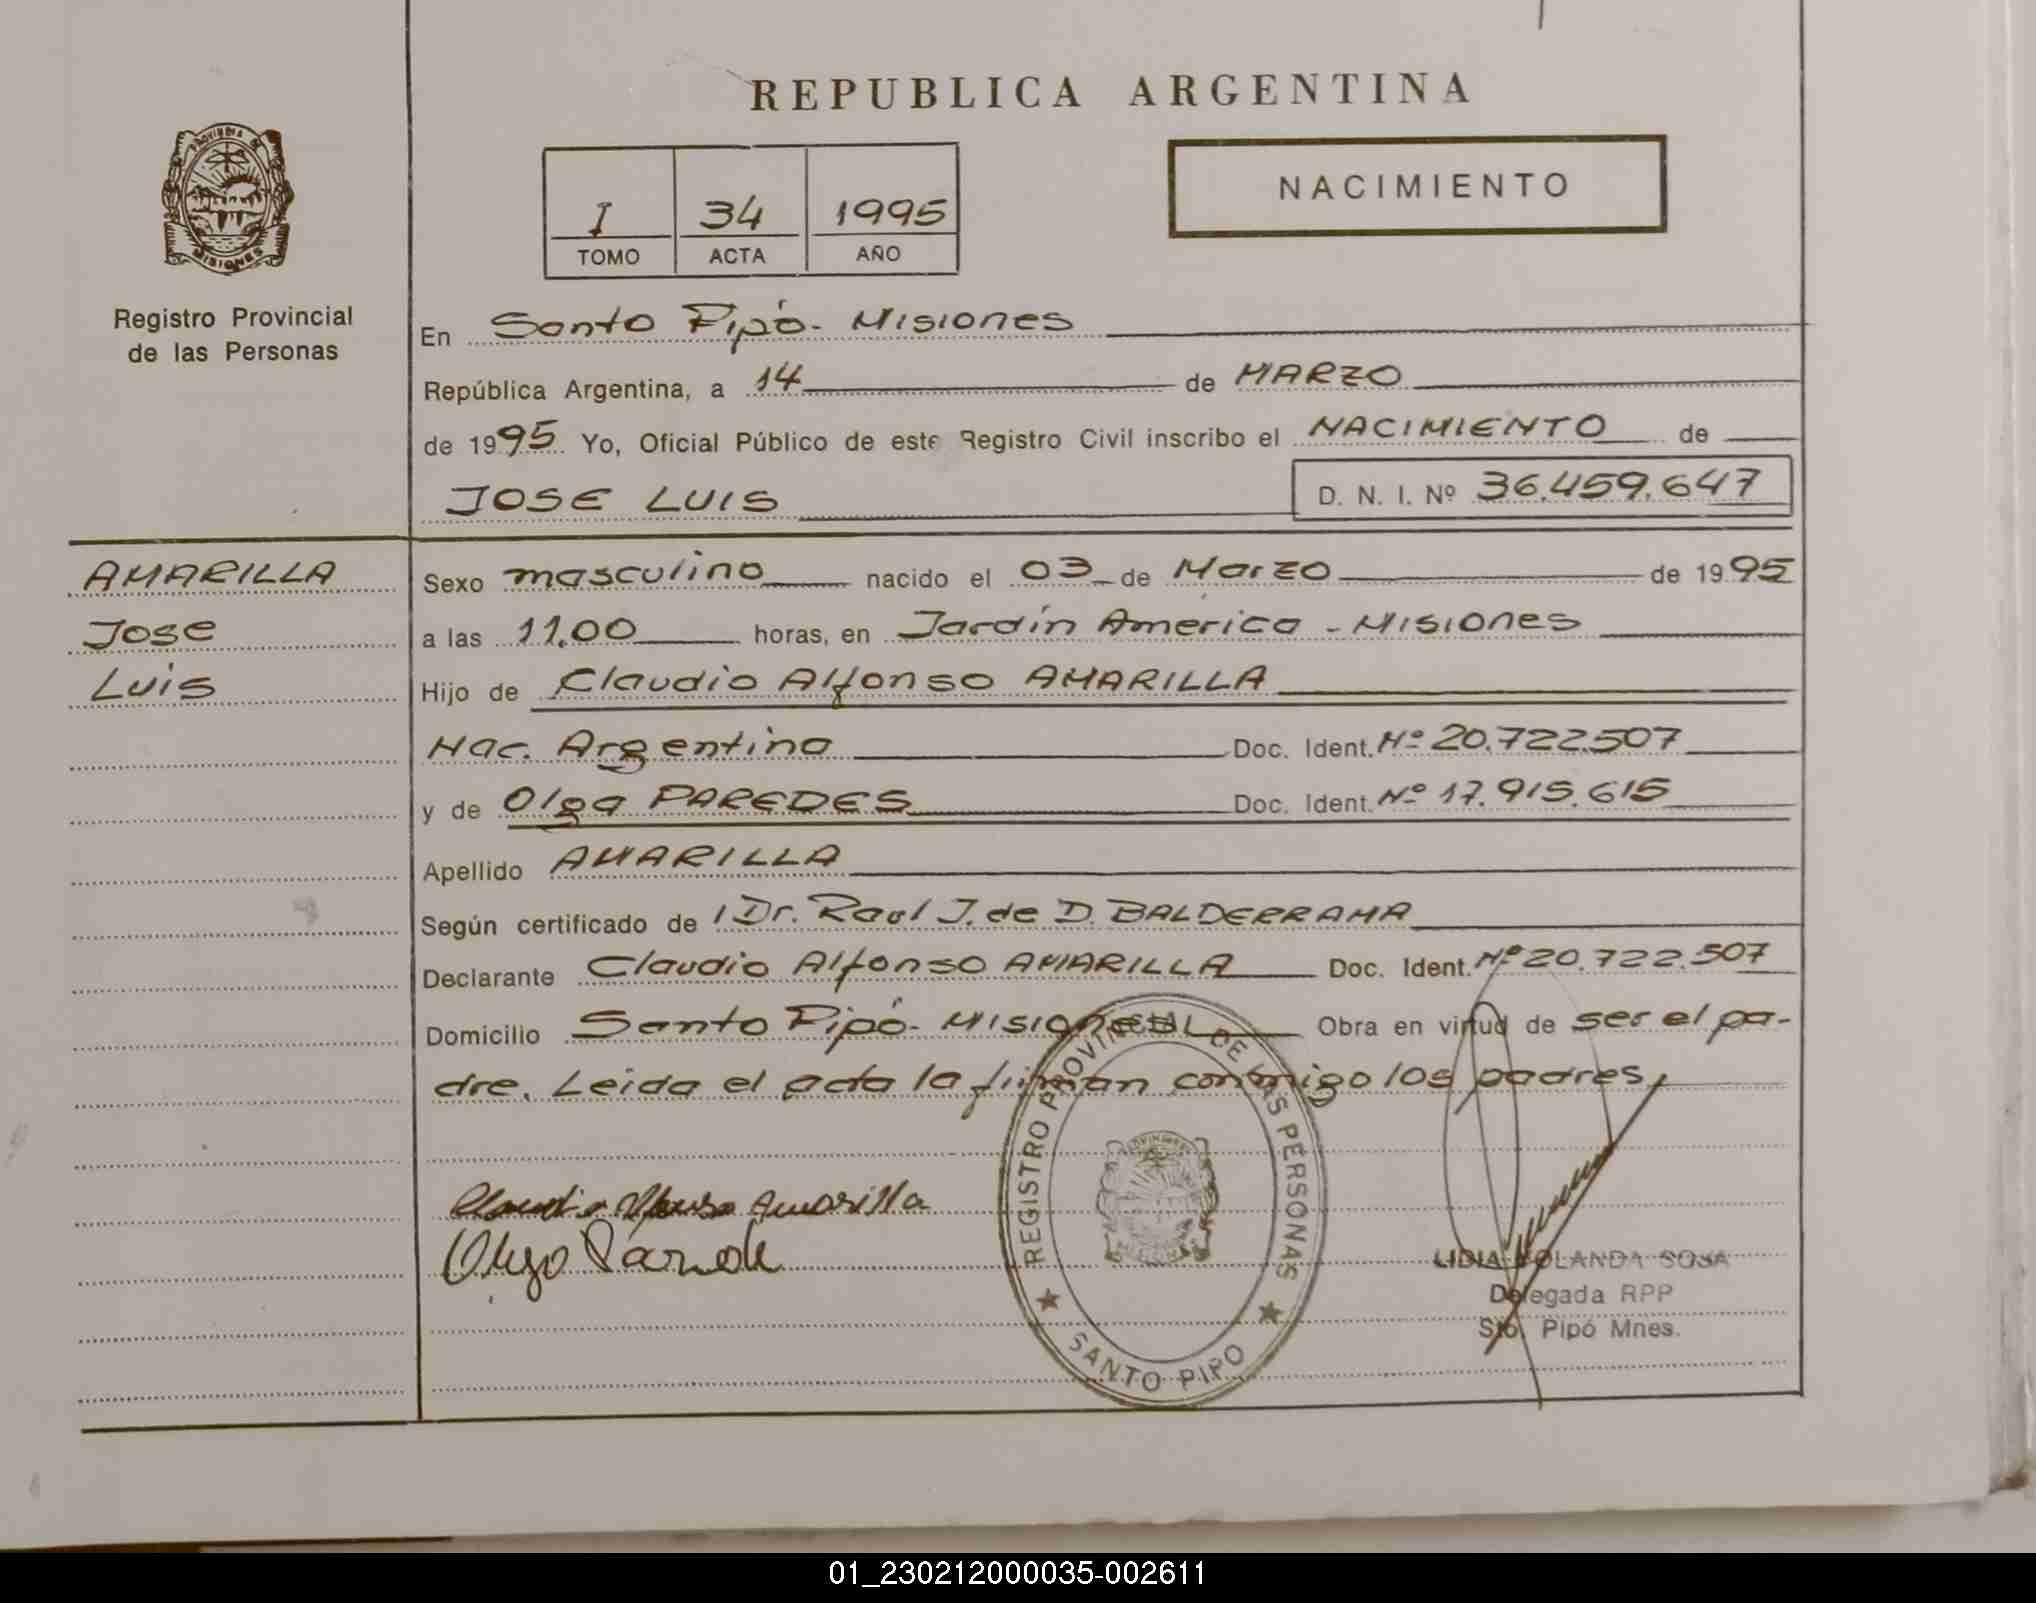 REPUBLICA ARGENTINA
PROVINCIA DE
MISIONES
Registro Provincial
de las Personas
I 34 1995
TOMO ACTA AÑO
NACIMIENTO
En Santo Pipó - Misiones
República Argentina, a 14 de MARZO
de 1995 Yo, Oficial Público de este Registro Civil inscribo el NACIMIENTO de
JOSE LUIS D. N. I. Nº 36.459.647
AMARILLA
Jose
Luis
Sexo masculino nacido el 03 de Marzo de 1995
a las 11,00 horas, en Jardín America - Misiones
Hijo de Claudio Alfonso AMARILLA
Nac. Argentina Doc. Ident. Nº 20.722.507
y de Olga PAREDES Doc. Ident. Nº 17.915.615
Apellido AMARILLA
Según certificado de Dr. Raul J. de D. BALDERRAMA
Declarante Claudio Alfonso AMARILLA Doc. Ident. Nº 20.722.507
Domicilio Santo Pipó - Misiones Obra en virtud de ser el pa-
dre. Leida el acta la firman conmigo los padres,
Claudio Alfonso Amarilla
Olga
REGISTRO PROVINCIAL DE LAS PERSONAS
SANTO PIPO
LIDIA YOLANDA SOSA
Delegada RPP
Sto. Pipó Mnes.
01_230212000035-002611